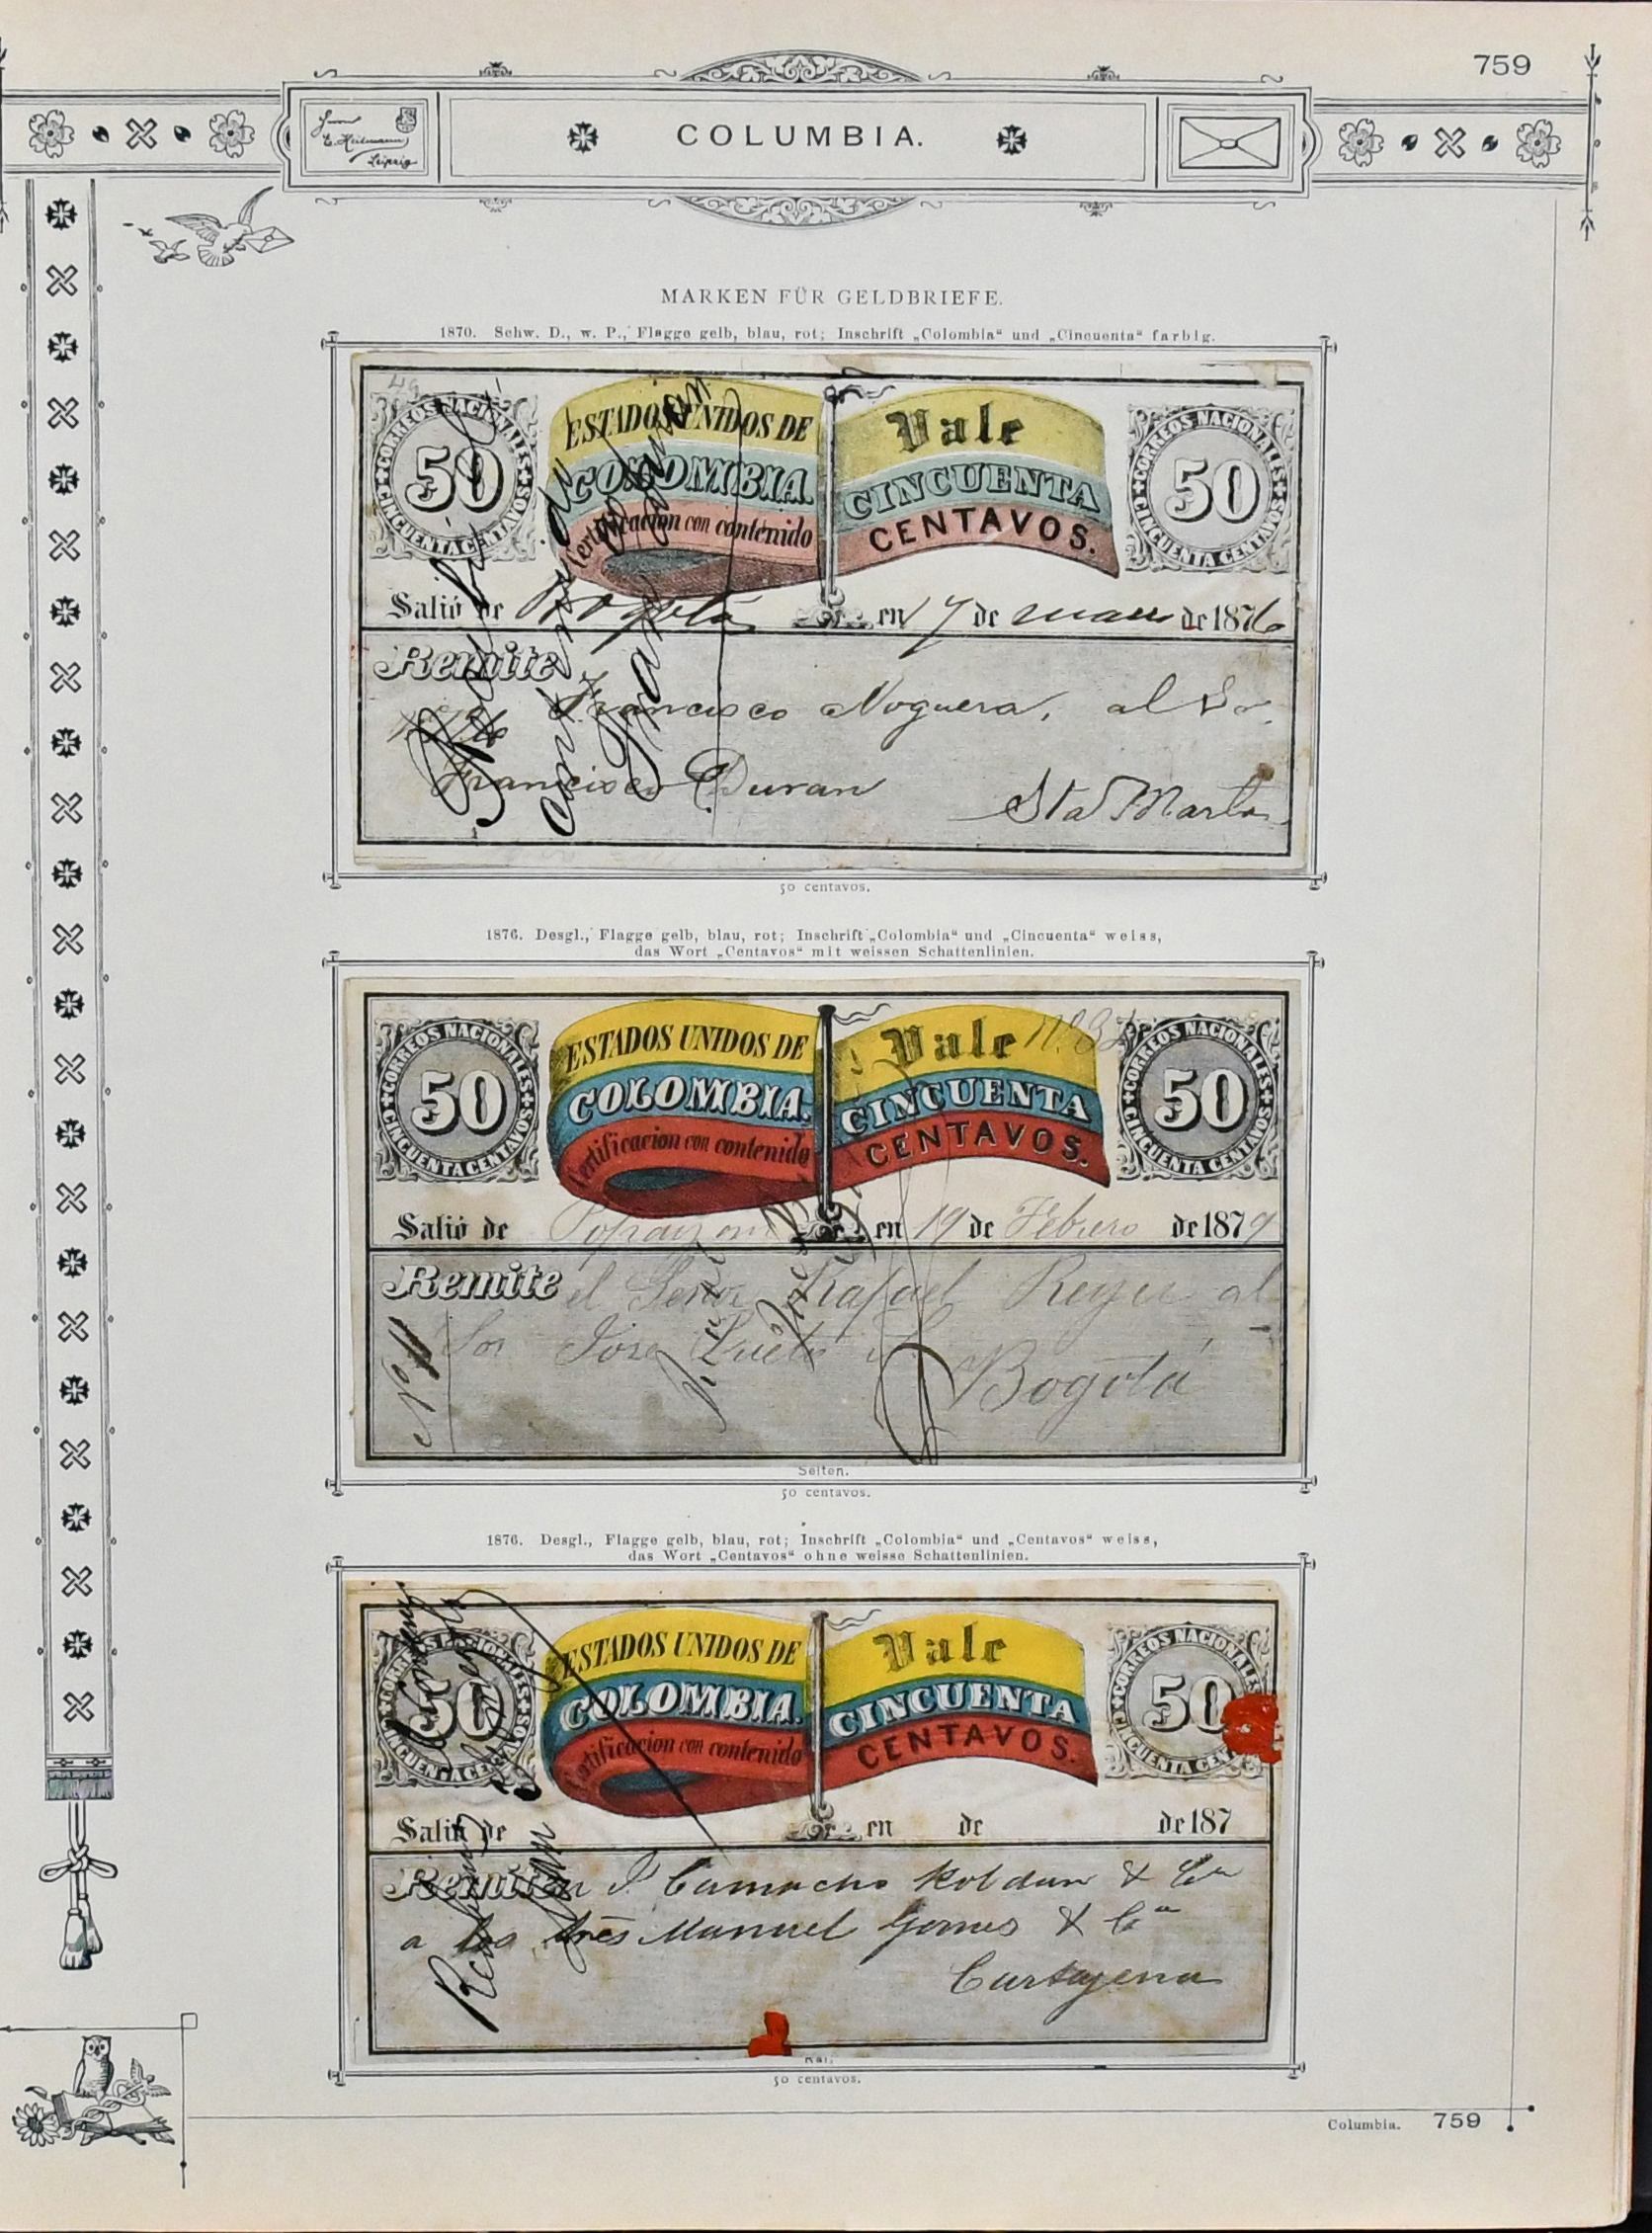 759
Herrn
E. Heitmann
Leipzig
COLUMBIA.
MARKEN FÜR GELDBRIEFE.
1870. Schw. D., w. P., Flagge gelb, blau, rot; Inschrift „Colombia“ und „Cincuenta“ farbig.
CORREOS NACIONALES
50
CINCUENTA CENTAVOS
ESTADOS UNIDOS DE
COLOMBIA.
Certificacion con contenido
Vale
CINCUENTA
CENTAVOS.
CORREOS NACIONALES
50
CINCUENTA CENTAVOS
Salió de Bogotá en 17 de de 1876
Remite
Francisco Noguera, al Sr.
Francisco Duran
Sta Marta
50 centavos.
1876. Desgl., Flagge gelb, blau, rot; Inschrift „Colombia“ und „Cincuenta“ weiss,
das Wort „Centavos“ mit weissen Schattenlinien.
CORREOS NACIONALES
50
CINCUENTA CENTAVOS
ESTADOS UNIDOS DE
COLOMBIA.
Certificacion con contenido
Vale
CINCUENTA
CENTAVOS.
CORREOS NACIONALES
50
CINCUENTA CENTAVOS
Salió de Popayan en 19 de Febrero de 1879
Remite el Señor Rafael Reyes al
Sor José
Bogotá
Selten.
50 centavos.
1876. Desgl., Flagge gelb, blau, rot; Inschrift „Colombia“ und „Centavos“ weiss,
das Wort „Centavos“ ohne weisse Schattenlinien.
CORREOS NACIONALES
50
CINCUENTA CENTAVOS
ESTADOS UNIDOS DE
COLOMBIA.
Certificacion con contenido
Vale
CINCUENTA
CENTAVOS.
CORREOS NACIONALES
50
CINCUENTA CENT
Salió de en de de 187
Remiten J. Camacho Roldan & Cia
a los Sres Manuel Gomes & Ca
Cartagena
50 centavos.
Columbia. 759